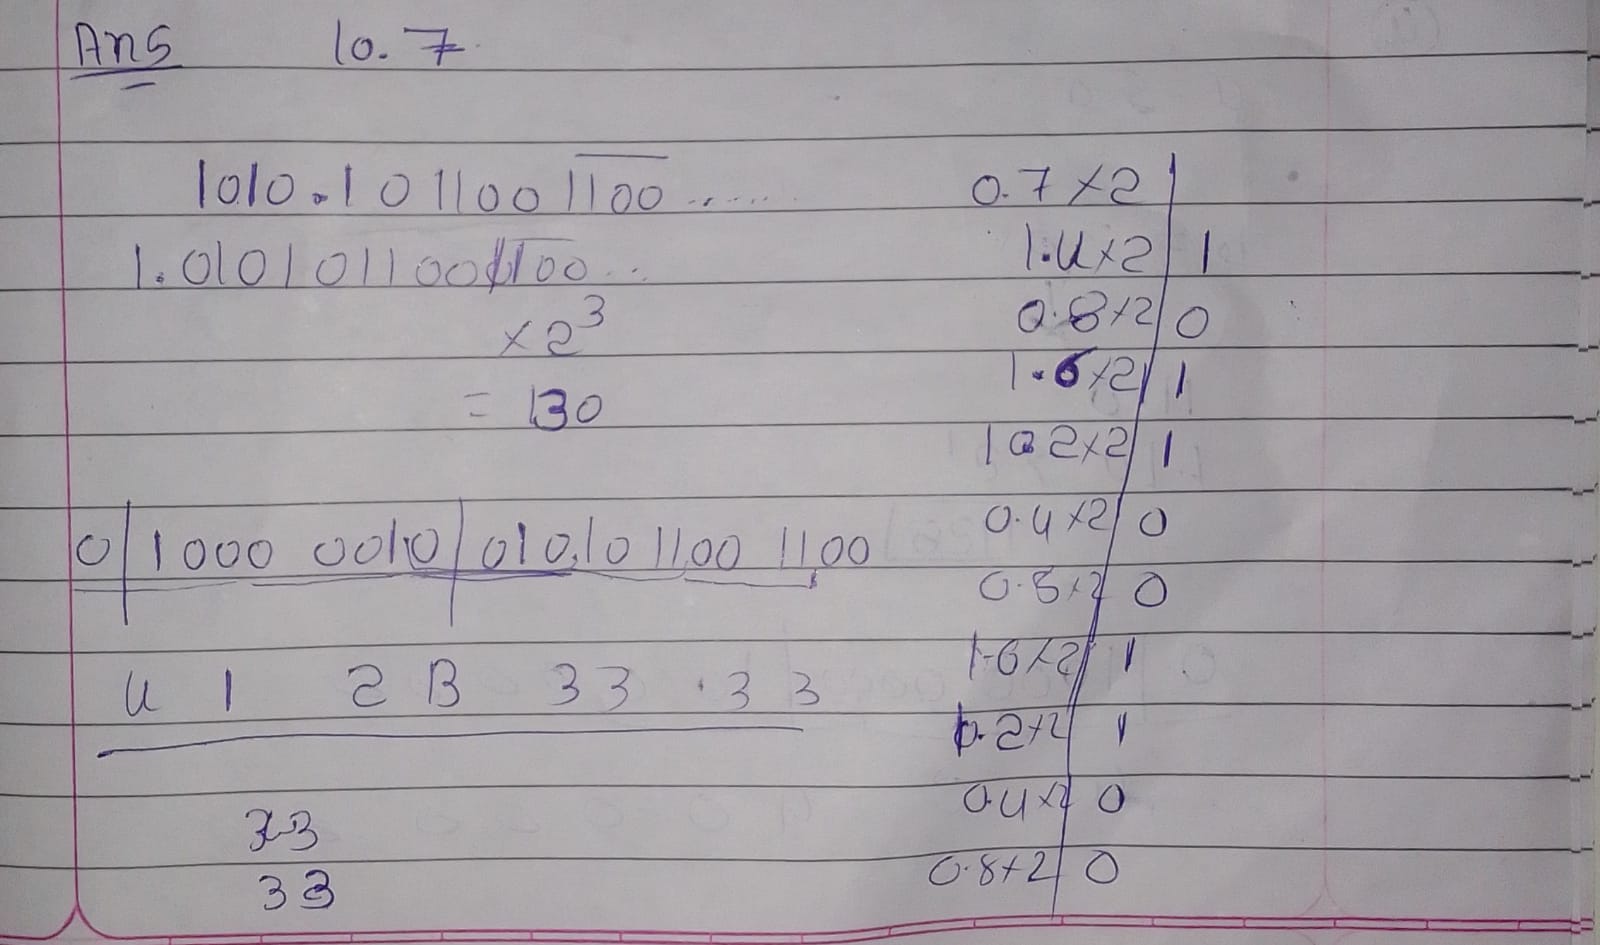 Ans 10.7
1010.1011001100......
1.0101011001100...
×2³
= 130
0|1000 0010|010101100 1100
4 1 2B 33 33
33
33
0.7×2|
1.4×2|1
0.8×2|0
1.6×2|1
1.2×2|1
0.4×2|0
0.8×2|0
1.6×2|1
1.2×2|1
0.4×2|0
0.8×2|0